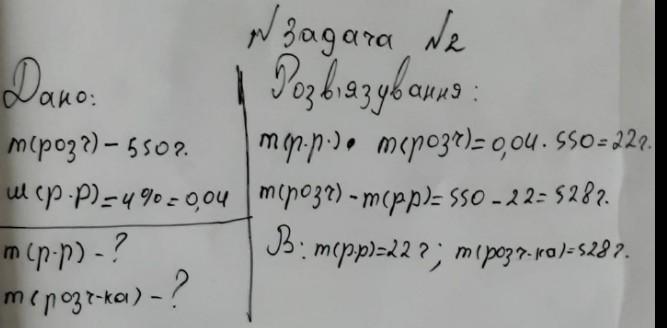 № Задача №2
Дано:
m(розч) - 550г.
ω(р.р)=4%=0,04
m(р.р) - ?
m(розч-ка) - ?
Розв'язування:
m(р.р.)• m(розч)=0,04·550=22г.
m(розч)-m(рр)=550-22=528г.
В: m(рр)=22г; m(розч-ка)=528г.